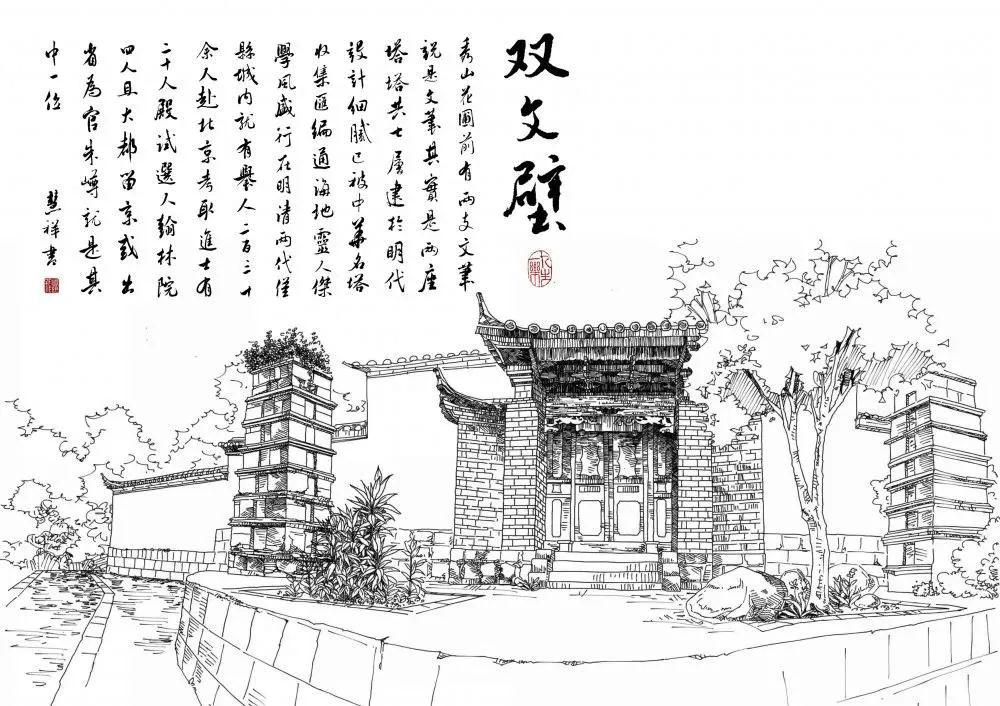 双文壁
秀山花圃前有两支文筆
説是文筆其實是两座
塔塔共七層建於明代
設計細膩已被中華名塔
收集匯編通海地靈人傑
學風盛行在明清两代僅
縣城内就有舉人二百三十
余人赴北京考取進士有
二十人殿試選入翰林院
四人且大都留京或出
省為官朱嶟就是其
中一位
慧祥書